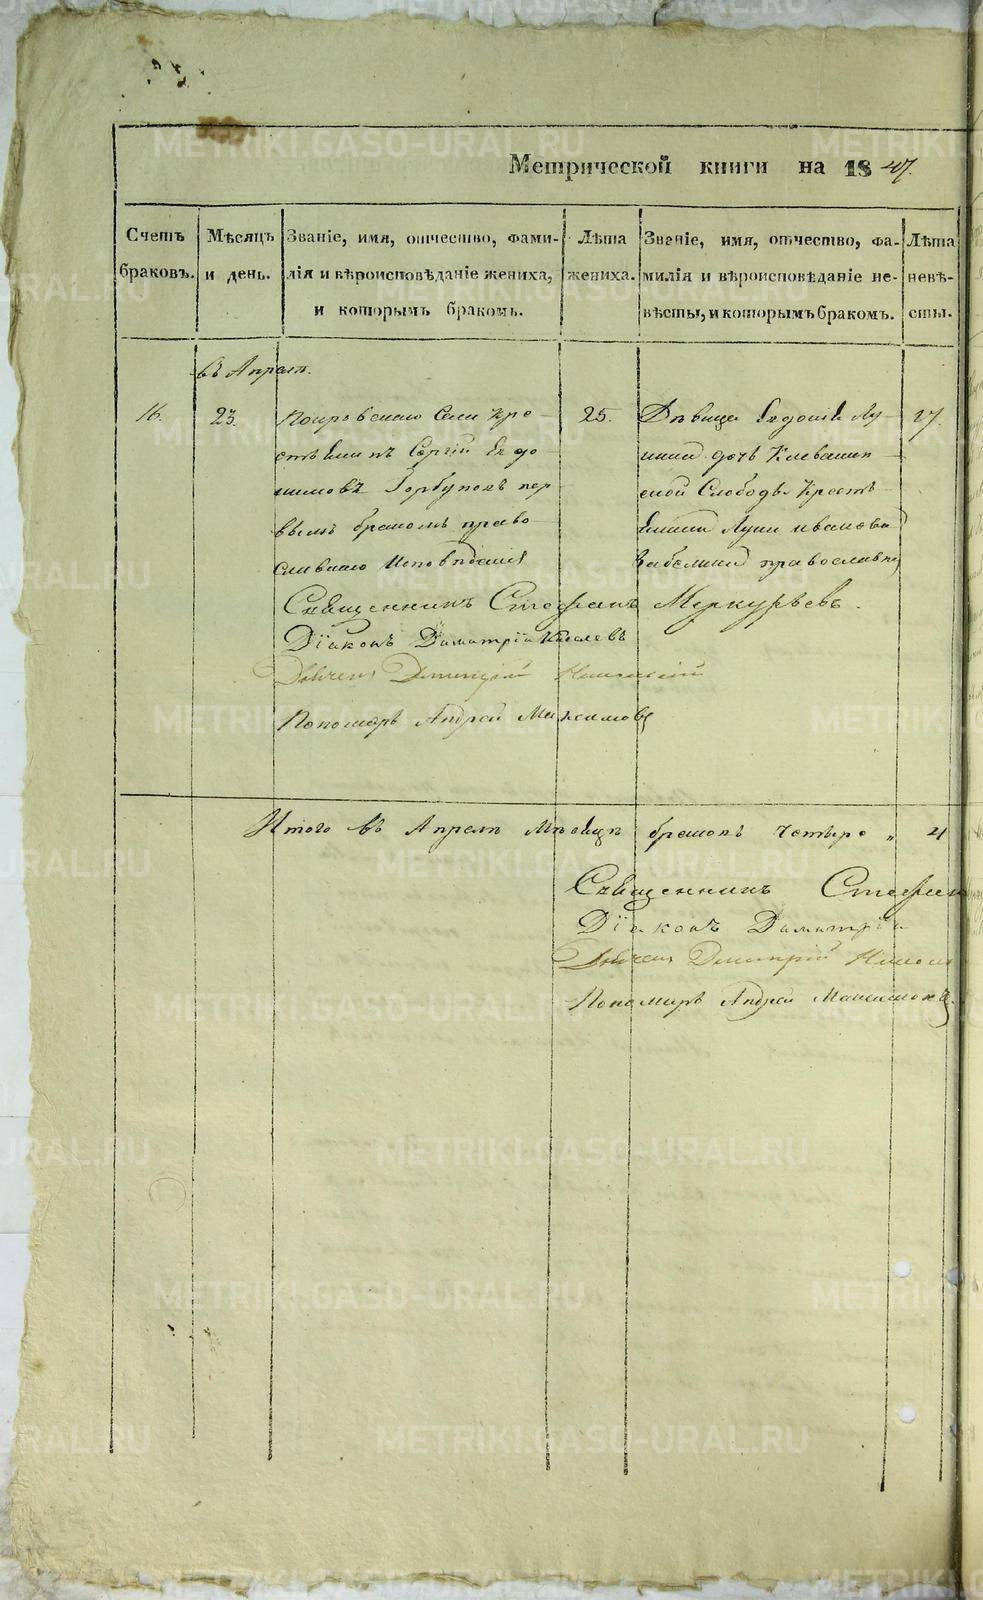 Метрической книги на 1847.
Счетъ браковъ.
Мѣсяцъ и день.
Званіе, имя, отчество, фами-
лія и вѣроисповѣданіе жениха,
и которымъ бракомъ.
Лѣта жениха.
Званіе, имя, отчество, фа-
милія и вѣроисповѣданіе не-
вѣсты, и которымъ бракомъ.
Лѣта невѣ-
сты.
въ Апрелѣ.
16.
23.
Покровскаго Села Кре-
стьянинъ Сергій Евдо-
кимовъ Горбуновъ пер
вымъ бракомъ право-
славнаго Исповѣданія
25.
Дѣвица Евдокія Лу-
кина дочь Клевакин-
ской Слободы Кресть
янина Луки Иванова
православна
27.
Священникъ Стефанъ Меркурьевъ.
Діаконъ Димитрій Киселевъ
Дьячекъ Дмитрій
Пономарь Андрей Максимовъ
Итого въ Апрелѣ Мѣсяцѣ браковъ четыре „ 4
Священникъ Стефан
Діаконъ Димитрій
Дьячекъ Дмитрій
Пономарь Андрей Максимовъ.
METRIKI.GASO-URAL.RU